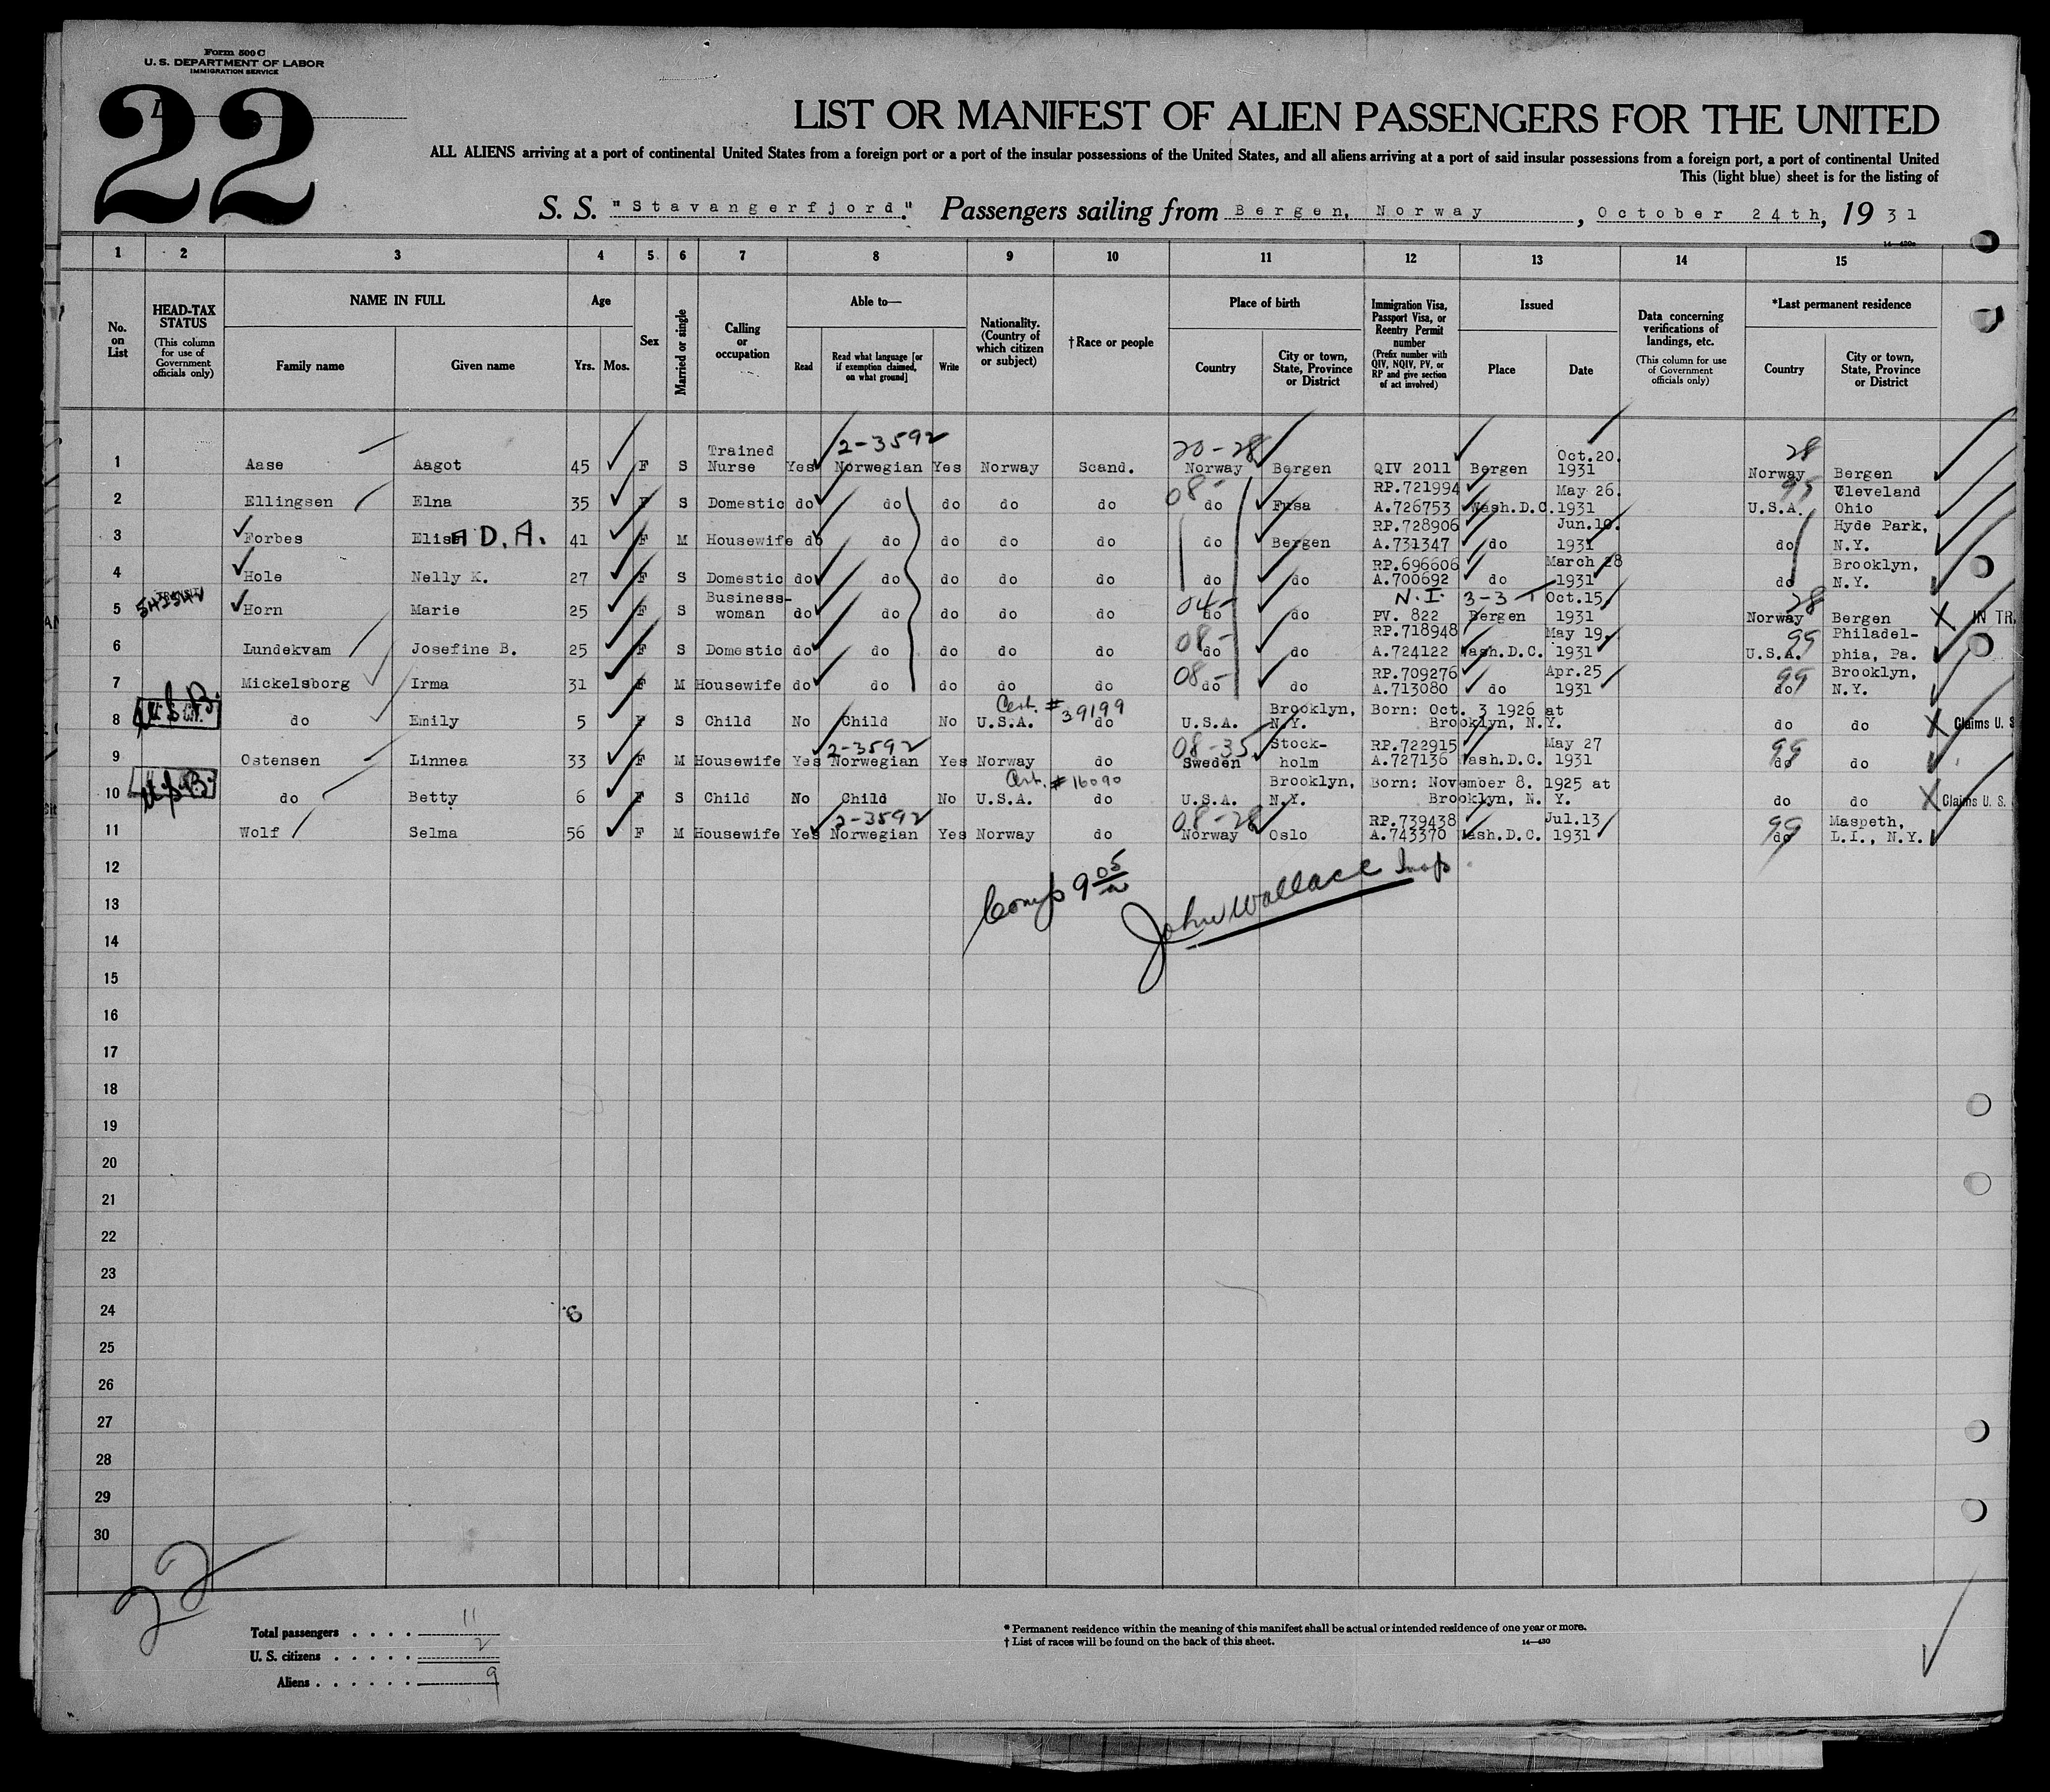 Form 500 C
U. S. DEPARTMENT OF LABOR
IMMIGRATION SERVICE
22
LIST OR MANIFEST OF ALIEN PASSENGERS FOR THE UNITED
ALL ALIENS arriving at a port of continental United States from a foreign port or a port of the insular possessions of the United States, and all aliens arriving at a port of said insular possessions from a foreign port, a port of continental United
This (light blue) sheet is for the listing of
S. S. "Stavangerfjord." Passengers sailing from Bergen, Norway, October 24th, 19 31
1 2 3 4 5 6 7 8 9 10 11 12 13 14 15
No. on List
HEAD-TAX STATUS (This column for use of Government officials only)
NAME IN FULL Family name Given name
Age Yrs. Mos.
Sex
Married or single
Calling or occupation
Able to— Read Read what language [or if exemption claimed, on what ground] Write
Nationality. (Country of which citizen or subject)
†Race or people
Place of birth Country City or town, State, Province or District
Immigration Visa, Passport Visa, or Reentry Permit number (Prefix number with QIV, NQIV, PV, or RP and give section of act involved)
Issued Place Date
Data concerning verifications of landings, etc. (This column for use of Government officials only)
*Last permanent residence Country City or town, State, Province or District
1 Aase Aagot 45 F S Trained Nurse Yes 2-3592 Norwegian Yes Norway Scand. 20-28 Norway Bergen QIV 2011 Bergen Oct.20. 1931 28 Norway Bergen
2 Ellingsen Elna 35 F S Domestic do do do do do 08- do Fusa RP.721994 A.726753 Wash.D.C. May 26. 1931 U.S.A. Cleveland Ohio
3 Forbes Elise A D.A. 41 F M Housewife do do do do do do Bergen RP.728906 A.731347 do Jun.10. 1931 do Hyde Park, N.Y.
4 Hole Nelly K. 27 F S Domestic do do do do do do do RP.696606 A.700692 do March 28 1931 do Brooklyn, N.Y.
5 TRANSIT Horn Marie 25 F S Business-woman do do do do do 04- do do N.I. PV. 822 3-3 Bergen Oct.15, 1931 28 Norway Bergen IN TR.
6 Lundekvam Josefine B. 25 F S Domestic do do do do do 08- do do RP.718948 A.724122 Wash.D.C. May 19. 1931 99 U.S.A. Philadel-phia, Pa.
7 Mickelsborg Irma 31 F M Housewife do do do do do 08- do do RP.709276 A.713080 do Apr.25 1931 99 do Brooklyn, N.Y.
8 do Emily 5 F S Child No Child No U.S.A. Cert. # 39199 do U.S.A. Brooklyn, N.Y. Born: Oct. 3 1926 at Brooklyn, N.Y. do do Claims U. S
9 Ostensen Linnea 33 F M Housewife Yes 2-3592 Norwegian Yes Norway do 08-35 Sweden Stock-holm RP.722915 A.727136 Wash.D.C. May 27 1931 99 do do
10 do Betty 6 F S Child No Child No U.S.A. Cert. # 16090 do U.S.A. Brooklyn, N.Y. Born: November 8. 1925 at Brooklyn, N. Y. do do Claims U. S.
11 Wolf Selma 56 F M Housewife Yes 2-3592 Norwegian Yes Norway do 08-28 Norway Oslo RP.739438 A.743370 Wash.D.C. Jul.13 1931 99 do Maspeth, L.I., N.Y.
12
13
14
Comp 9 05
John Wallace Insp.
15
16
17
18
19
20
21
22
23
24 6
25
26
27
28
29
30
22
Total passengers . . . . 11
U. S. citizens . . . . . 2
Aliens . . . . . . 9
* Permanent residence within the meaning of this manifest shall be actual or intended residence of one year or more.
† List of races will be found on the back of this sheet. 14—430